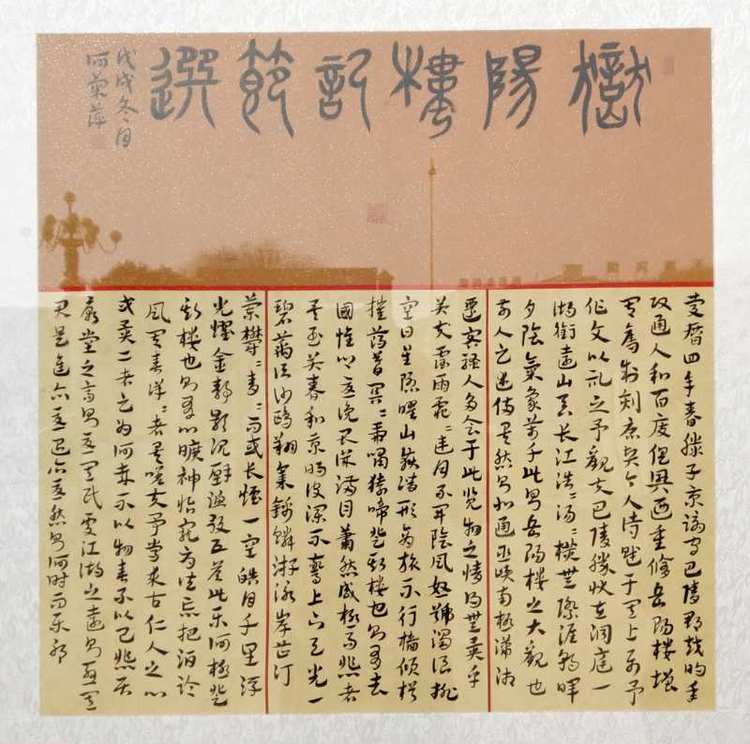 嶽陽樓記節選
戊戌冬月
何
慶曆四年春滕子京謫守巴陵郡越明年
政通人和百廢俱興迺重修岳陽樓增
其舊制刻唐賢今人詩賦于其上屬予
作文以記之予觀夫巴陵勝狀在洞庭一
湖銜遠山吞長江浩〻湯〻橫無際涯朝暉
夕陰氣象萬千此則岳陽樓之大觀也
前人之述備矣然則北通巫峽南極瀟湘
遷客騷人多會于此覽物之情得無異乎
若夫霪雨霏〻連月不開陰風怒號濁浪排
空日星隱曜山嶽潛形商旅不行檣傾楫
摧薄暮冥〻虎嘯猿啼登斯樓也則有去
國憂讒畏譏滿目蕭然感極而悲者
矣至若春和景明波瀾不驚上下天光一
碧萬頃沙鷗翔集錦鱗游泳岸芷汀
蘭鬱〻青〻而或長煙一空皓月千里浮
光耀金靜影沉璧漁歌互答此樂何極登
斯樓也則有心曠神怡寵辱皆忘把酒臨
風其喜洋〻者矣嗟夫予嘗求古仁人之心
或異二者之為何哉不以物喜不以己悲居
廟堂之高則憂其民處江湖之遠則憂其
君是進亦憂退亦憂然則何時而樂耶